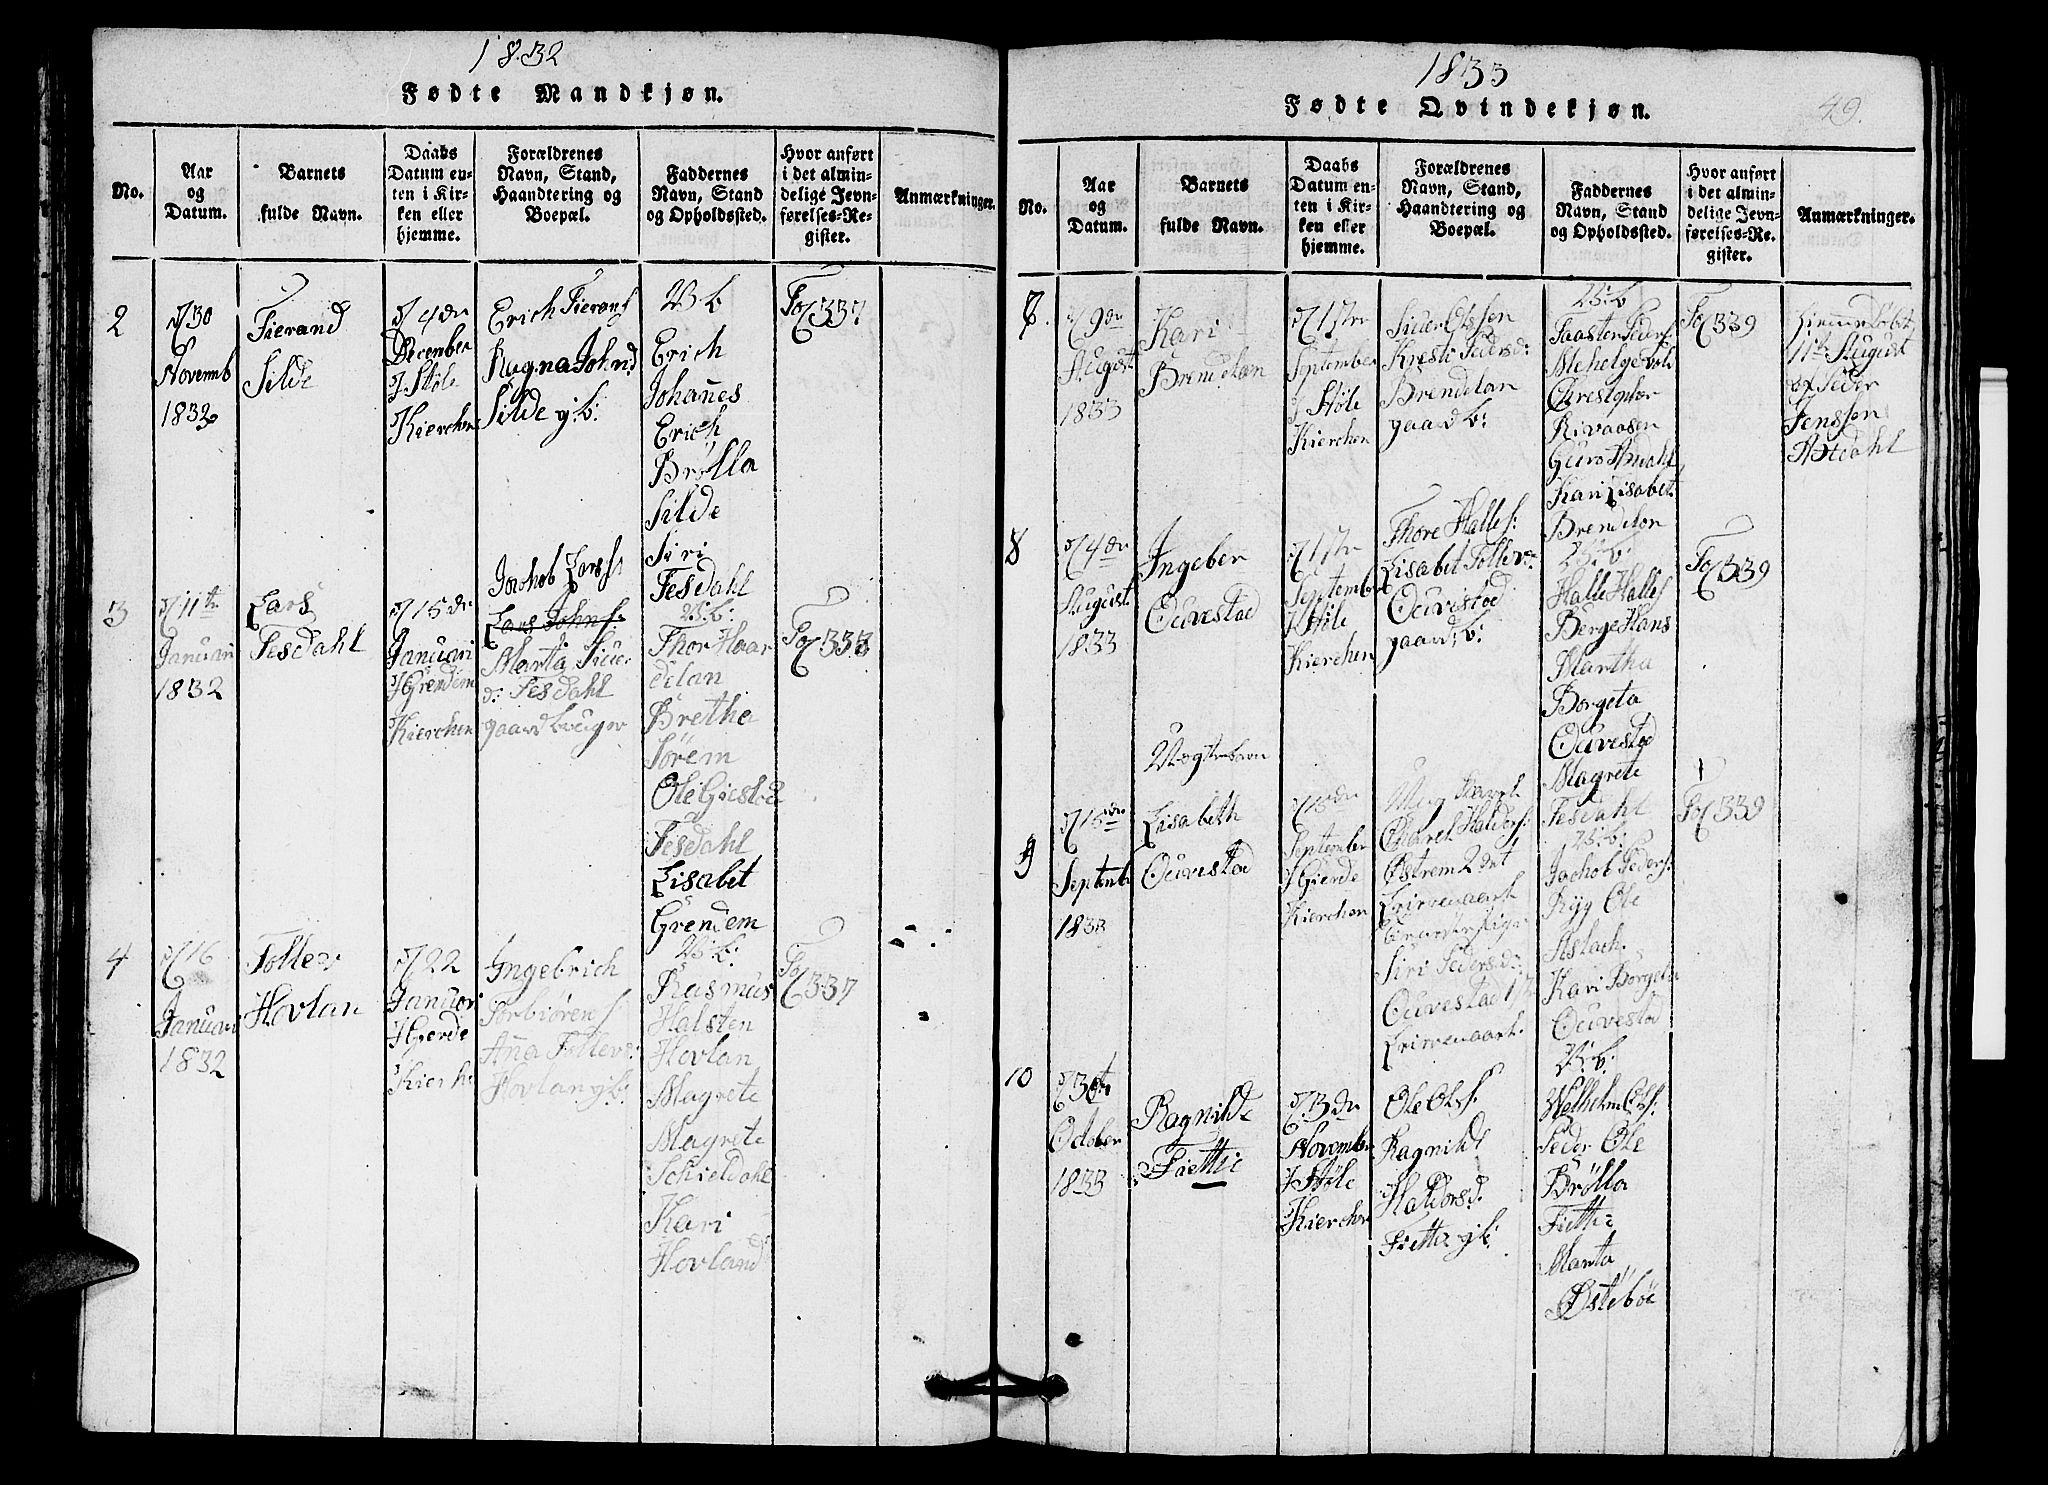 1832
Fødte Mandkjøn.
No.
Aar
og
Datum.
Barnets
fulde Navn.
Daabs
Datum en-
ten i Kir-
ken eller
hjemme.
Forældrenes
Navn, Stand,
Haandtering og
Boepæl.
Faddernes
Navn, Stand
og Opholdssted.
Hvor anført
i det almin-
delige Jevn-
førelses-Re-
gister.
Anmærkninger.
2
30
Novemb
1832
Fierand
Silde
4 dn
December
J Støle
Kierchen
Erich Fierans
Ragna Johnd
Silde g: b:
V: b
Erich
Johañes
Erich
Brølla
Silde
Siri
Tesdahl
Fo 337
3
11te
Januari
1832
Lars
Tesdahl
15 dn
Januari
J Grendem
Kierchen
Jachob Larss
Lars Johns:
Marta Siver
d: Tesdahl
gaard bruger
V: b:
Thor Haar
delan
Bretha
Sörem
Ole Giestod
Tesdahl
Lisabet
Grendem
Fo 338
4
16
Januari
1832
Tollev
Hovlan
22
Januari
J Gierde
Kierch
Ingebrich
Torbiörens
Aña Tollevd:
Hovlan g b:
V: b:
Rasmus
Halsten
Hovlan
Magrete
Magrete
Schieldahl
Kari
Hovland
Fo 337
1833
Fødte Qvindekjøn.
49.
No.
Aar
og
Datum.
Barnets
fulde Navn.
Daabs
Datum en-
ten i Kir-
ken eller
hjemme.
Forældrenes
Navn, Stand,
Haandtering og
Boepæl.
Faddernes
Navn, Stand
og Opholdssted.
Hvor anført
i det almin-
delige Jevn-
førelses-Re-
gister.
Anmærkninger.
7.
9 dn
August
1833
Kari
Brendelan
1ste
September
J Støle
Kierchen
Siver Olssen
Kresti Peders d:
Brendelan
gaard b:
V: b
Taasten Peders:
Mehelgevold
Chrestopher
Rivaasen
Guro Apdahl
Kari Lisabet
Brendelan
Fo 339
hiemme døbt
11te August
af Peder
Jenssen
Apdahl
8
4 dn
August
1833
Ingeber
Ouvestad
1ste
Septemb
J Støle
Kierchen
Thore Halles:
Lisabet Tollevd:
Ouvestad
gaard: b:
V: b:
Halle Halles
Berge Hans
Martha
Borgeta
Ouvestad
Magrete
Tesdahl
Fo 339
9
15 dn
Septemb
1833
Uægtebarn
Lisabeth
Ouvestad
15 dn
September
J Gierde
Kierchen
Ung karl
Østrem 2 det
Siri Peders d:
Ouvestad 1ste
V: b:
Jachob Peders:
Ryg Ole
Aslach
Kari Borgeta
Ouvestad
Fo 339
10
30te
October
1833
Ragnilde
Fiette
3 dn
November
J Støle
Kierchen
Ole Ols:
Ragnild
Haldorsd:
Fiette g b:
V: b:
Welhelm Ols:
Peder Ole
Brölla
Fiette
Marta
Østebøe